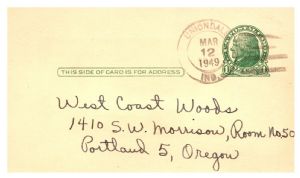 UNIONDALE
MAR
12
1949
IND.
THIS SIDE OF CARD IS FOR ADDRESS
West Coast Woods
1410 S.W. Morrison, Room No. 50
Portland 5, Oregon